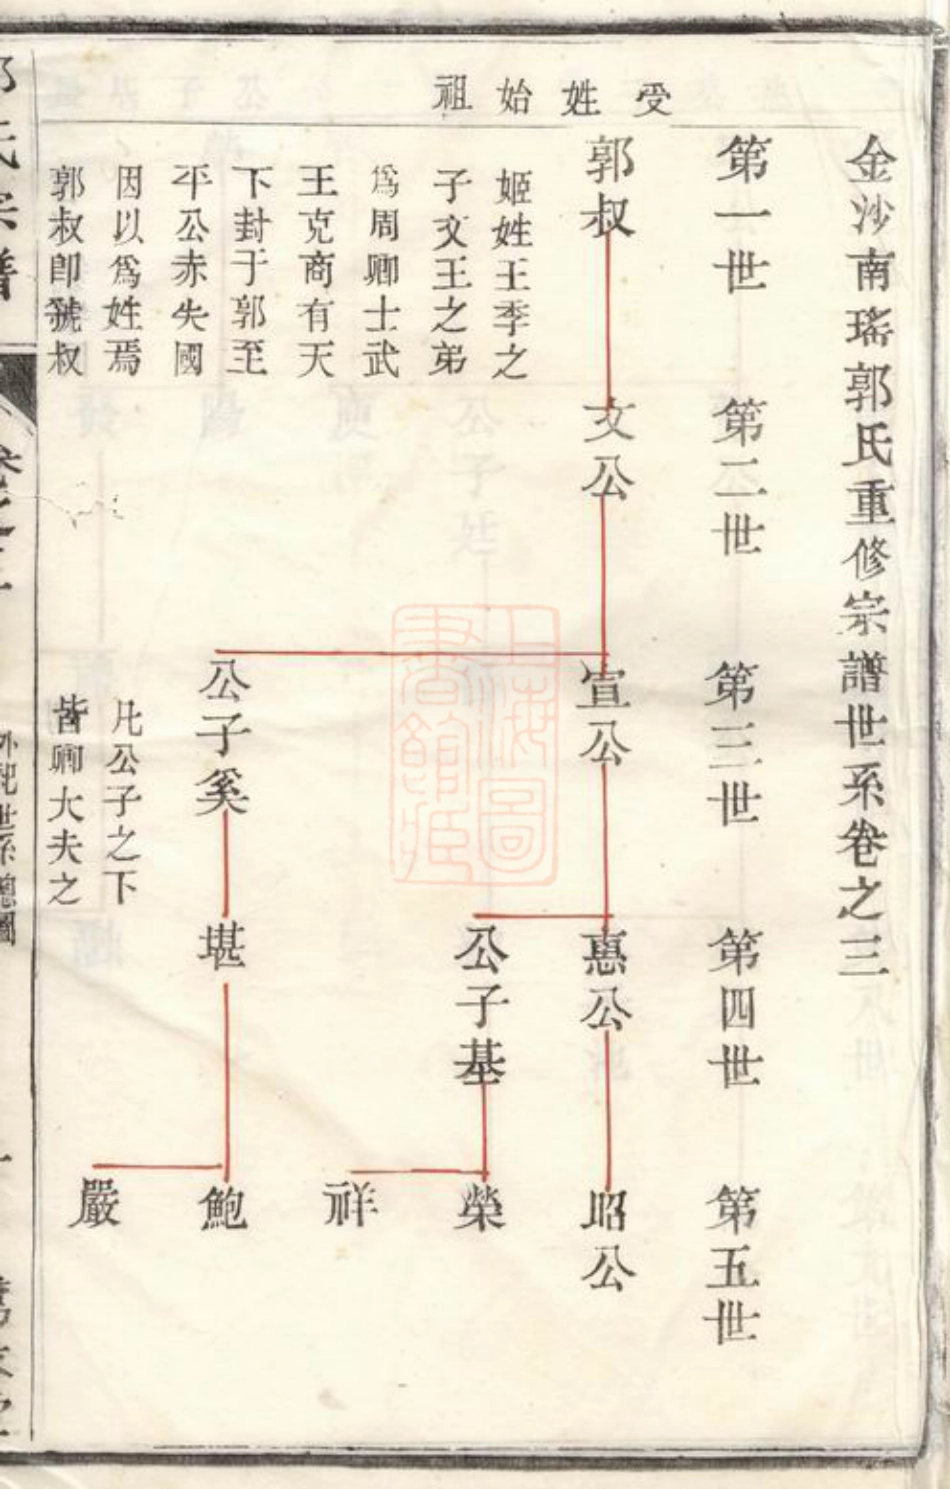 金沙南瑤郭氏重修宗譜世系卷之三
受姓始祖
第一世
第二世
第三世
第四世
第五世
郭叔
文公
宣公
惠公
昭公
姬姓王季之
子文王之弟
爲周卿士武
王克商有天
下封于郭至
平公赤失國
因以爲姓焉
郭叔卽虢叔
公子基
榮
祥
公子奚
堪
鮑
嚴
凡公子之下
皆卿大夫之
上海圖書館藏
氏宗譜
卷之三
外紀世系總圖